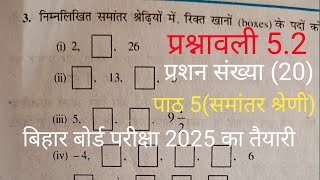 3. निम्नलिखित समांतर श्रेढ़ियों में, रिक्त खानों (boxes) के पदों को
(i) 2, 26
प्रश्नावली 5.2
(ii) 13,
प्रशन संख्या (20)
(iii) 5, 9 1/2
पाठ 5(समांतर श्रेणी)
बिहार बोर्ड परीक्षा 2025 का तैयारी
(iv) -4,